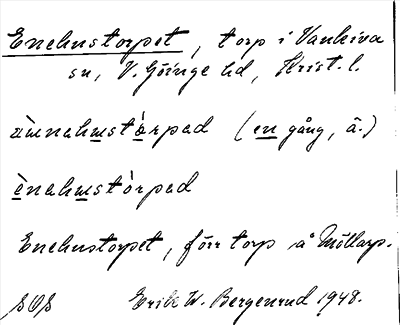 Enehustorpet, torp i Vankiva
sn, V. Göinge hd, Krist. l.
ä̀nnahustå̀rpad (en gång, ä.)
ènahustòrpad
Enehustorpet, förr torp å Möllarp.
SOS Erik W. Bergenrud 1948.